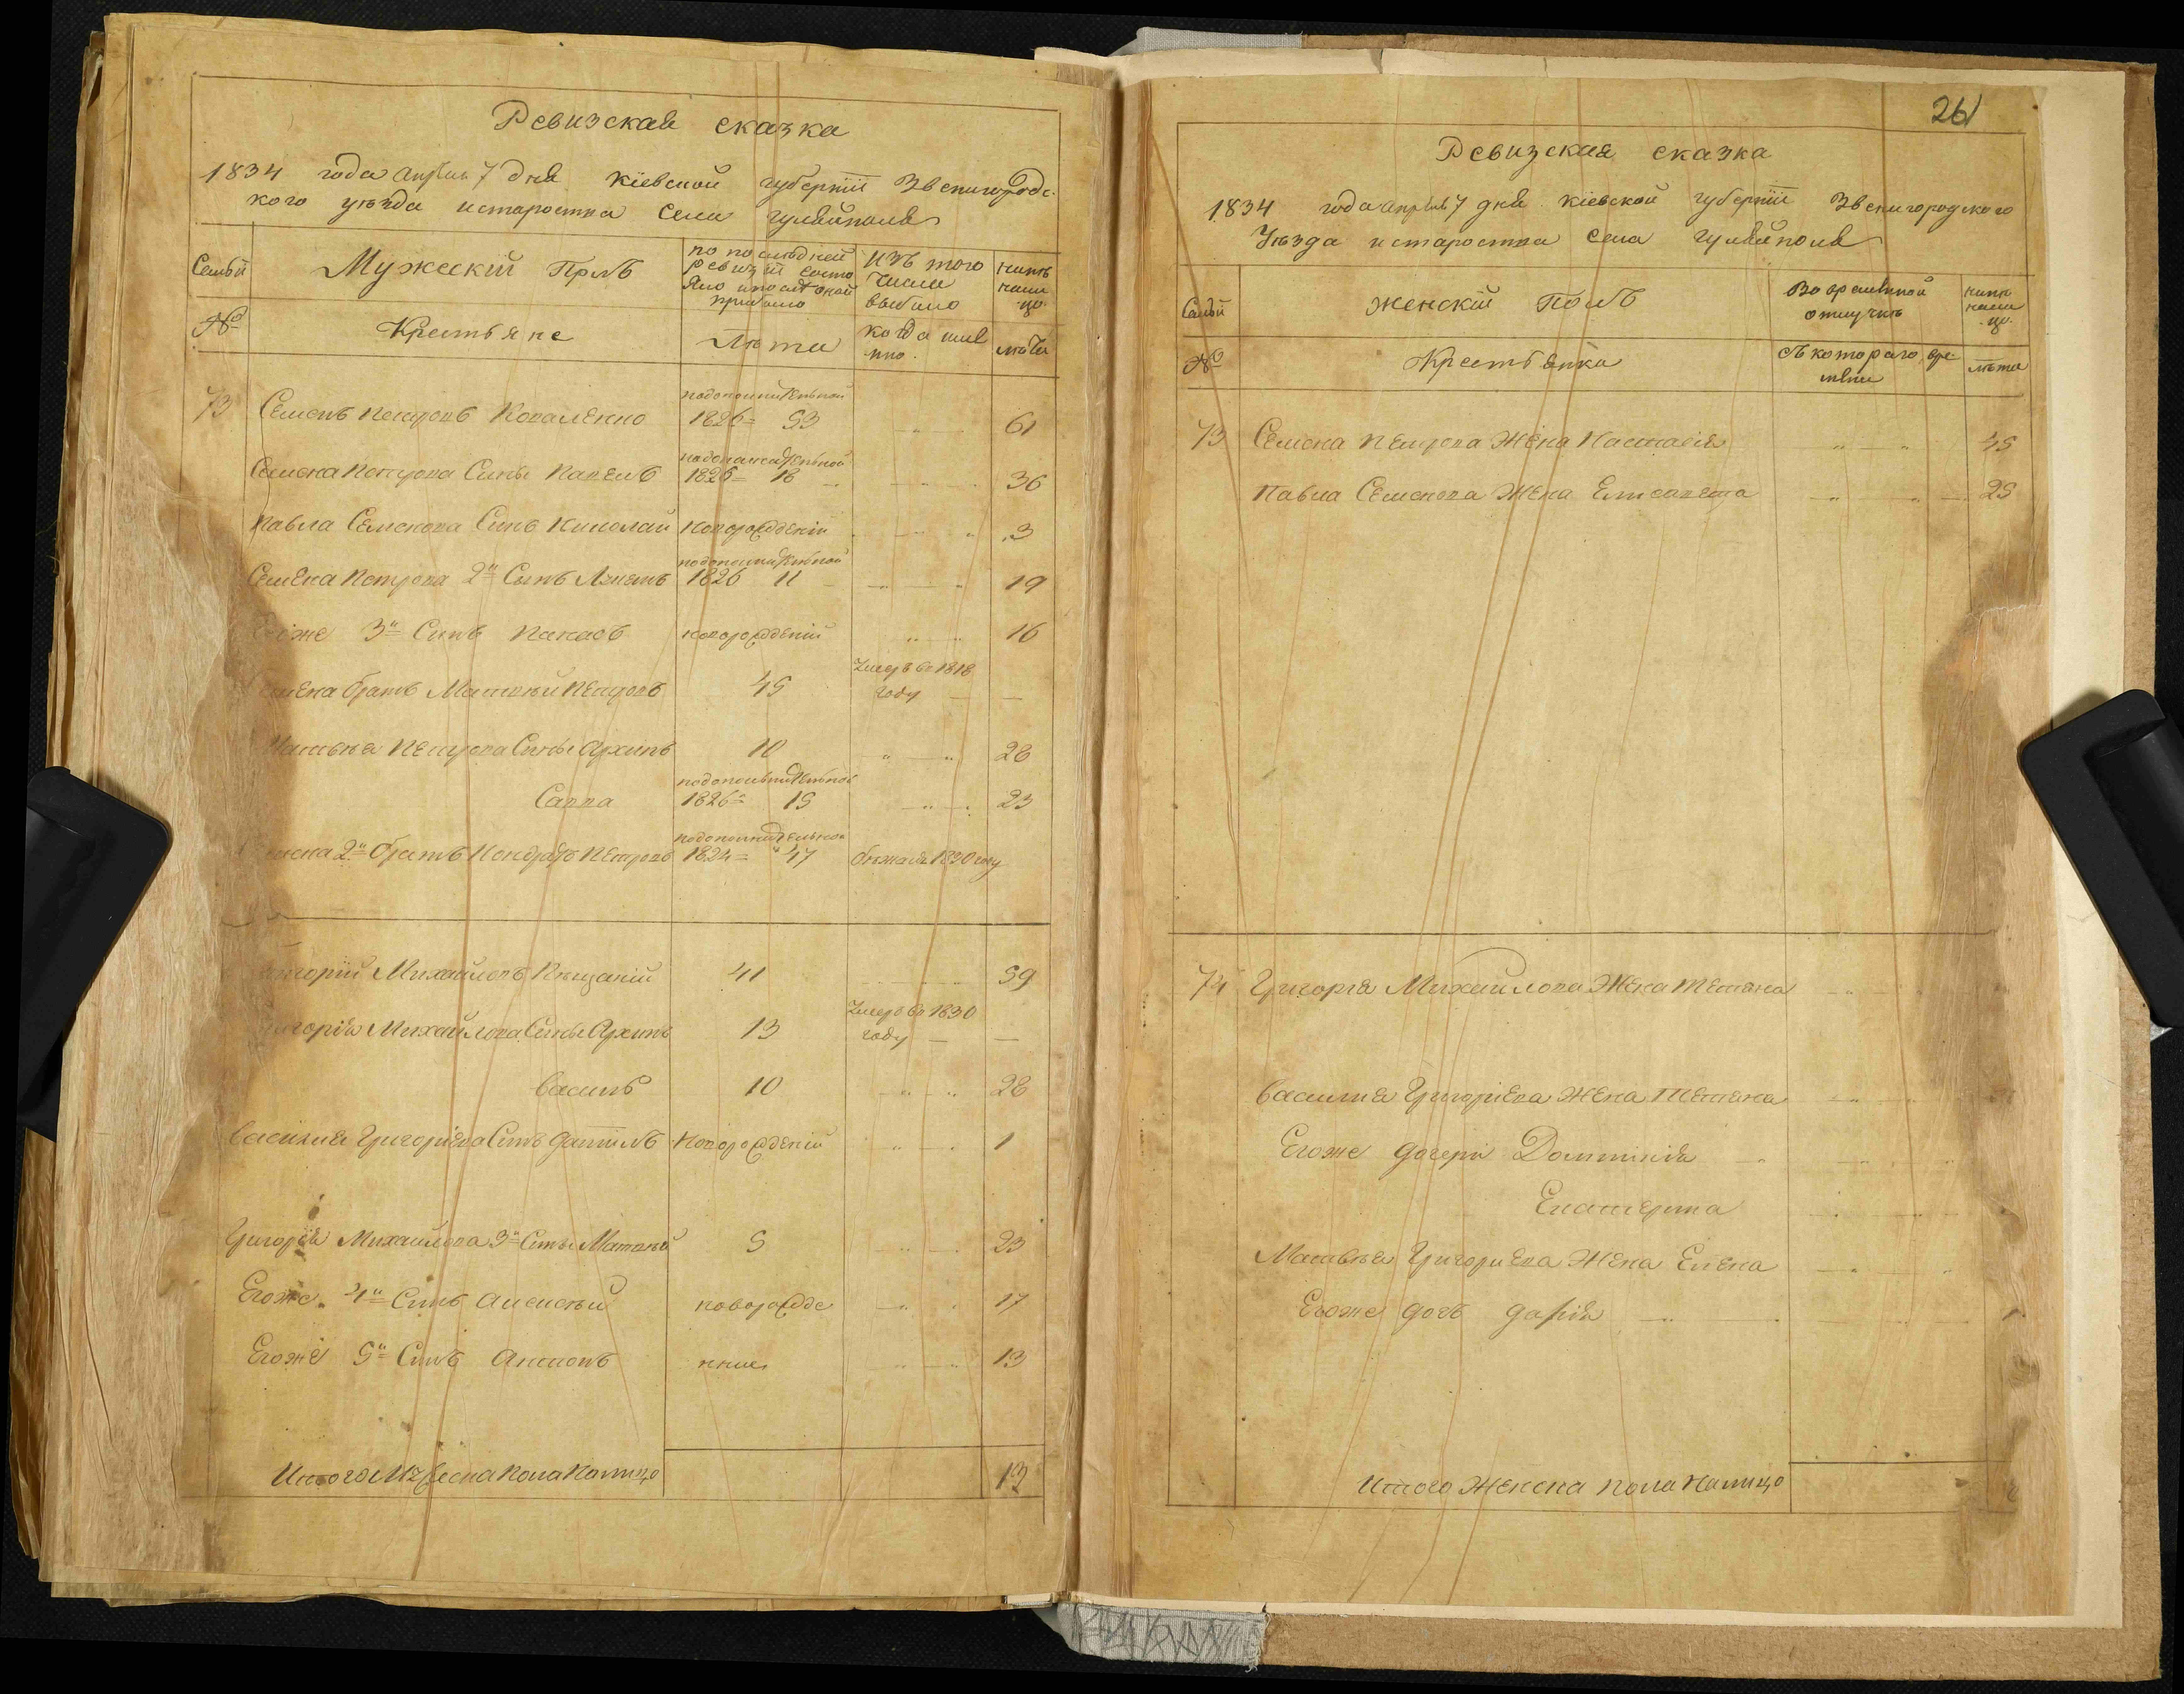 Ревизская сказка
1834 года апреля 7 дня Кіевской губерніи Звенигородс-
кого уѣзда истаростка Села гуляйполя
Семьи
Мужескій Полъ
по последней ревизіи состояло ипослѣ оной прибыло
Изъ того числа выбыло
нынѣ налицо
№
Крестьяне
Лѣта
когда имянно.
лѣта
73 Семенъ Петровъ Коваленко 1826 = 53 61
Семена Петрова Сынъ Павелъ 1826 = 18 36
Павла Семенова Сынъ Николай Новорожденій 3
Семена Петрова 2й Сынъ 1826 11 19
Егоже 3й Сынъ новорожденій 16
Семена братъ Матвѣй Петровъ 45 Умеръ въ 1818
году
Матвѣя Петрова Сынъ Архипъ 10 28
Савва 1826 = 15 23
Семена 2й братъ Кондратъ Петровъ 1824 = 47 бѣжалъ 1830 году
Григорій Михайловъ 41 59
Григорія Михайлова Сынъ Архипъ 13 Умеръ въ 1830
году
Василь 10 28
Василия Григоріева Сынъ Даніилъ Новорожденій 1
Григорія Михайлова 3й Сынъ Матвѣй 5 23
Егоже 4й Сынъ Алексѣй новорожде 17
Егоже 5й Сынъ Антонъ нние 13
Итого Мужеска Пола Налицо 13
261
Ревизская сказка
1834 года апреля 7 дня Кіевской губерніи Звенигородского
Уѣзда истаростка Села гуляйполя
Семьи
женскій Полъ
Во временной отлучкѣ
нынѣ налицо.
№
Крестьянки
Съ котораго времени
лѣта
73 Семена Петрова Жена Настасія 45
Павла Семенова Жена Елисавета 25
74 Григорія Михайлова Жена Татяна
Василия Григоріева Жена Татяна
Егоже дочери Домникія
Екатерина
Матвѣя Григориева Жена Елена
Егоже дочь Дарія 1
Итого Женска пола Налицо